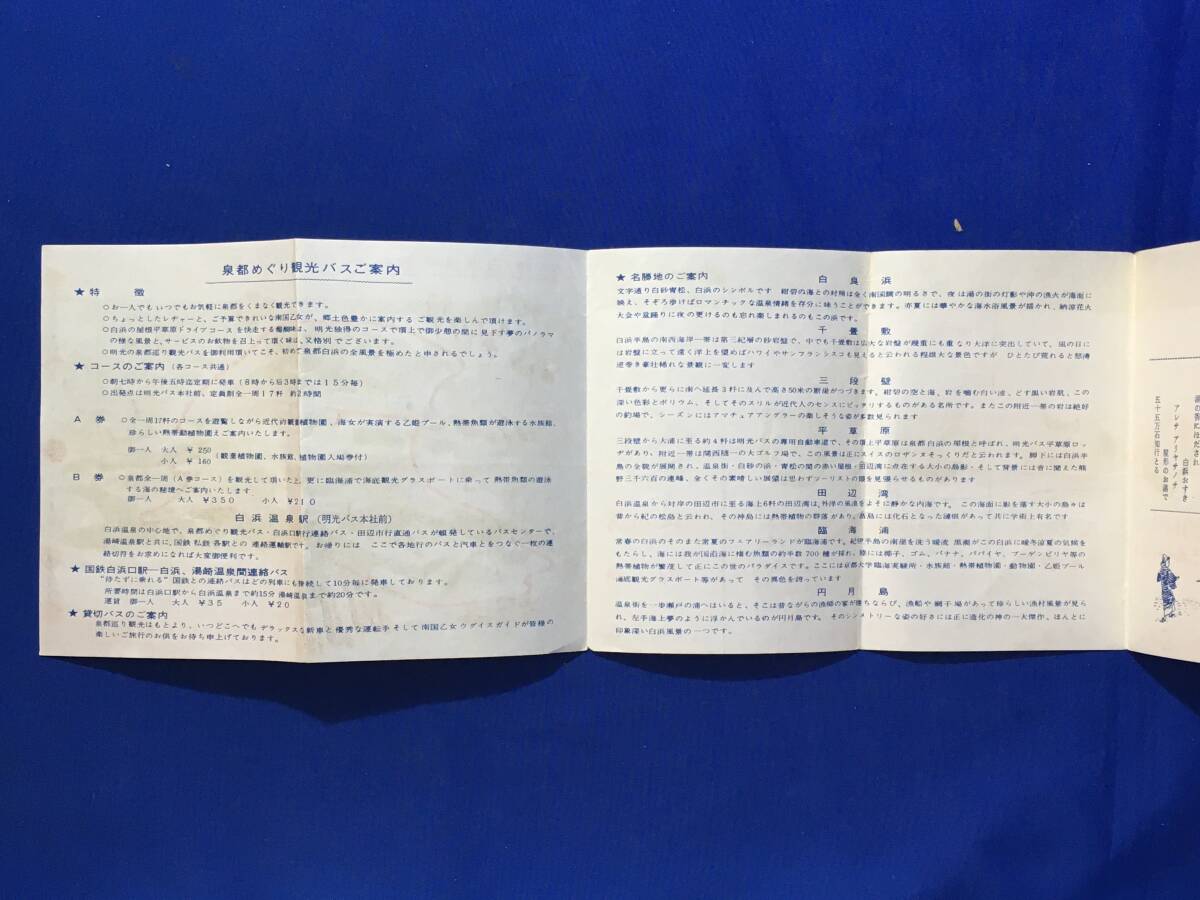 泉都めぐり観光バスご案内
★ 特　徴
○お一人でもいつでもお気軽に泉都をくまなく観光できます。
○ちょっとしたレヂャーと、ご予算できれいな南国乙女が、郷土色豊かに案内するご観光を楽しんで頂けます。
○白浜の屋根平草原ドライアコースを快走する醍醐味は、明光独得のコースで頂上で御少憩の間に見下す夢のパノラマ
の様な風景と、サービスのお飲物を召上って頂く味は、又格別でございます。
○明光の泉都巡り観光バスを御利用頂いてこそ、初めて泉都白浜の全風景を極めたと申されるでしょう。
★ コースのご案内（各コース共通）
○朝七時から午後五時迄定期に発車（8時から后3時までは15分毎）
○出発点は明光バス本社前、定員制全一周17粁 約2時間
A　券　○全一周17粁のコースを遊覧しながら近代的観植物園、海女が実演する乙姫プール、熱帯魚類が遊泳する水族館、
珍らしい熱帯動植物園えご案内いたします。
御一人　大人　￥250
小人　￥160
（観葉植物園、水族館、植物園入場券付）
B　券　○泉都全一周（A券コース）を観光して頂いた上、更に臨海浦で海底観光グラスボートに乗って熱帯魚類の遊泳
する海の秘境へご案内いたします。
御一人　大人　￥350　小人　￥210
白浜温泉駅（明光バス本社前）
白浜温泉の中心地で、泉都めぐり観光バス・白浜口駅行連絡バス・田辺市行直通バスが頻発しているバスセンターで、
湯崎温泉駅と共に、国鉄 私鉄 各駅との 連絡運輸駅です。お帰りには　ここで各地行のバスと汽車とをつなぐ一枚の連
絡切符をお求めになれば大変御便利です。
★ 国鉄白浜口駅―白浜、湯崎温泉間連絡バス
“待たずに乗れる” 国鉄との連絡バスはどの列車にも接続して10分毎に発車しております。
所要時間は白浜口駅から白浜温泉まで約15分 湯崎温泉まで約20分です。
運賃　御一人　大人　￥35　小人　￥20
★ 貸切バスのご案内
泉都巡り観光はもとより、いつどこへでもデラックスな新車と優秀な運転手そして南国乙女ウグイスガイドが皆様の
楽しいご旅行のお供をお待ち申上げております。
★ 名勝地のご案内
白良浜
文字通り白砂青松、白浜のシンボルです 紺碧の海との対照は全く南国調の明るさで、夜は湯の街の灯影や沖の漁火が海面に
映え、そぞろ歩けばロマンチックな温泉情緒を存分に味うことができます。亦夏には華やかな海水浴風景が描かれ、納涼花火
大会や盆踊りに夜の更けるのも忘れ楽しまれるのもこの浜です。
千畳敷
白浜半島の南西海岸一帯は第三紀層の砂岩盤で、中でも千畳敷は広大な岩盤が幾重にも重なり大洋に突出していて、風の日に
は岩盤に立って遠く洋上を望めばハワイやサンフランシスコも見えると云われる程雄大な景色ですが　ひとたび荒れると怒涛
逆巻き豪壮稀れな景観に一変します
三段壁
千畳敷から更らに南へ延長3粁に及んで高さ50米の断崖がつづきます。紺碧の空と海、岩を噛む白い波、どす黒い岩肌、この
深い色彩とボリウム、そしてそのスリルが近代人のセンスにピッタリするものがある名所です。またこの附近一帯の岩は絶好
の釣場で、シーズンにはアマチュアアングラーの楽しそうな姿が多数見られます
平草原
三段壁から大浦に至る約4粁は明光バスの専用自動車道で、その頂上平草原は泉都白浜の屋根と呼ばれ、明光バス平草原ロッ
ヂがあり、附近一帯は関西随一の大ゴルフ場で、この風景は正にスイスのロザンヌそっくりだと云われます。脚下には白浜半
島の全貌が展開され、温泉街・白砂の浜・青松の間の赤い屋根・田辺湾に点在する大小の島影・そして背景には昔に聞えた熊
野三千六百の連峰、全くその素晴しい展望は思わずツーリストの眼を見張らせるものがあります
田辺湾
白浜温泉から対岸の田辺市に至る海上6粁の田辺湾は、外洋の風浪をよそに静かな内海です。　この海面に影を落す大小の島々は
昔から紀の松島と云われ、その神島には熱帯植物の群落があり、畠島には化石となった漣痕があって共に学術上有名です
臨海浦
常春の白浜のそのまた常夏のフェアリーランドが臨海浦です。紀伊半島の南崖を洗う暖流 黒潮がこの白浜に暖冬涼夏の気候を
もたらし、海には我が国沿海に棲む魚類の約半数700種が採れ、陸には椰子、ゴム、バナナ、パパイヤ、ブーゲンビリヤ等の
熱帯植物が繁茂して正にこの世のパラダイスです。ここには京都大学臨海実験所・水族館・熱帯植物園・動物園・乙姫プール
海底観光グラスボート等があって　その異色を誇っています
円月島
温泉街を一歩瀬戸の浦へはいると、そこは昔ながらの漁師の家が建ちならび、漁船や網干場があって珍らしい漁村風景が見ら
れ、左手海上夢のように浮かんでいるのが円月島です。そのシンメトリーな姿の好さには正に造化の神の一大傑作、ほんとに
印象深い白浜風景の一つです。
白浜おすき
湯の街にほだされ
アレサ アリャサノサ
屋形のお湯で
五十五万石知行とる